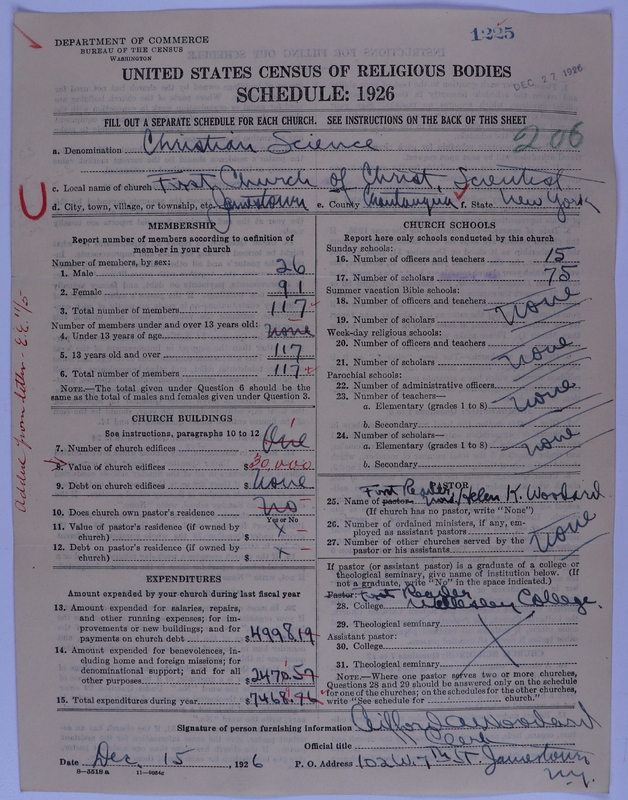 DEPARTMENT OF COMMERCE
BUREAU OF THE CENSUS
WASHINGTON
1225
DEC 27 1926
UNITED STATES CENSUS OF RELIGIOUS BODIES
SCHEDULE: 1926
FILL OUT A SEPARATE SCHEDULE FOR EACH CHURCH. SEE INSTRUCTIONS ON THE BACK OF THIS SHEET
206
a. Denomination Christian Science
c. Local name of church First Church of Christ, Scientist
d. City, town, village, or township, etc. Jamestown e. County Chautauqua f. State New York
MEMBERSHIP
Report number of members according to definition of
member in your church
Number of members, by sex:
1. Male 26
2. Female 91
3. Total number of members 117
Number of members under and over 13 years old:
4. Under 13 years of age none
5. 13 years old and over 117
6. Total number of members 117
NOTE.—The total given under Question 6 should be the
same as the total of males and females given under Question 3.
CHURCH BUILDINGS
See instructions, paragraphs 10 to 12
7. Number of church edifices One
8. Value of church edifices $30,000
9. Debt on church edifices $ none
10. Does church own pastor's residence? no
Yes or No
11. Value of pastor's residence (if owned by
church) $ x
12. Debt on pastor's residence (if owned by
church) $ x
Added from letter - E.E. 11/5
EXPENDITURES
Amount expended by your church during last fiscal year
13. Amount expended for salaries, repairs,
and other running expenses; for im-
provements or new buildings; and for
payments on church debt $4998.19
14. Amount expended for benevolences, in-
cluding home and foreign missions; for
denominational support; and for all
other purposes $2470.57
15. Total expenditures during year $7468.76
CHURCH SCHOOLS
Report here only schools conducted by this church
Sunday schools:
16. Number of officers and teachers 15
17. Number of scholars 75
Summer vacation Bible schools:
18. Number of officers and teachers
19. Number of scholars none
Week-day religious schools:
20. Number of officers and teachers
21. Number of scholars none
Parochial schools:
22. Number of administrative officers
23. Number of teachers—
a. Elementary (grades 1 to 8) none
b. Secondary
24. Number of scholars—
a. Elementary (grades 1 to 8) none
b. Secondary
PASTOR
First Reader
25. Name of pastor Mrs Helen K. Woodard
(If church has no pastor, write "None")
26. Number of ordained ministers, if any, em-
ployed as assistant pastors
27. Number of other churches served by the
pastor or his assistants none
If pastor (or assistant pastor) is a graduate of a college or
theological seminary, give name of institution below. (If
not a graduate, write "No" in the space indicated.)
Pastor: First Reader
28. College Wellesley College.
29. Theological seminary
Assistant pastor:
30. College
31. Theological seminary
NOTE.—Where one pastor serves two or more churches,
Questions 28 and 29 should be answered only on the schedule
for one of the churches; on the schedules for the other churches,
write "See schedule for church."
Signature of person furnishing information Clifford A Woodard
Official title Clerk
Date Dec. 15, 1926 P. O. Address 102 W. 7th St. Jamestown
N.Y.
8—5518 a 11—9034c